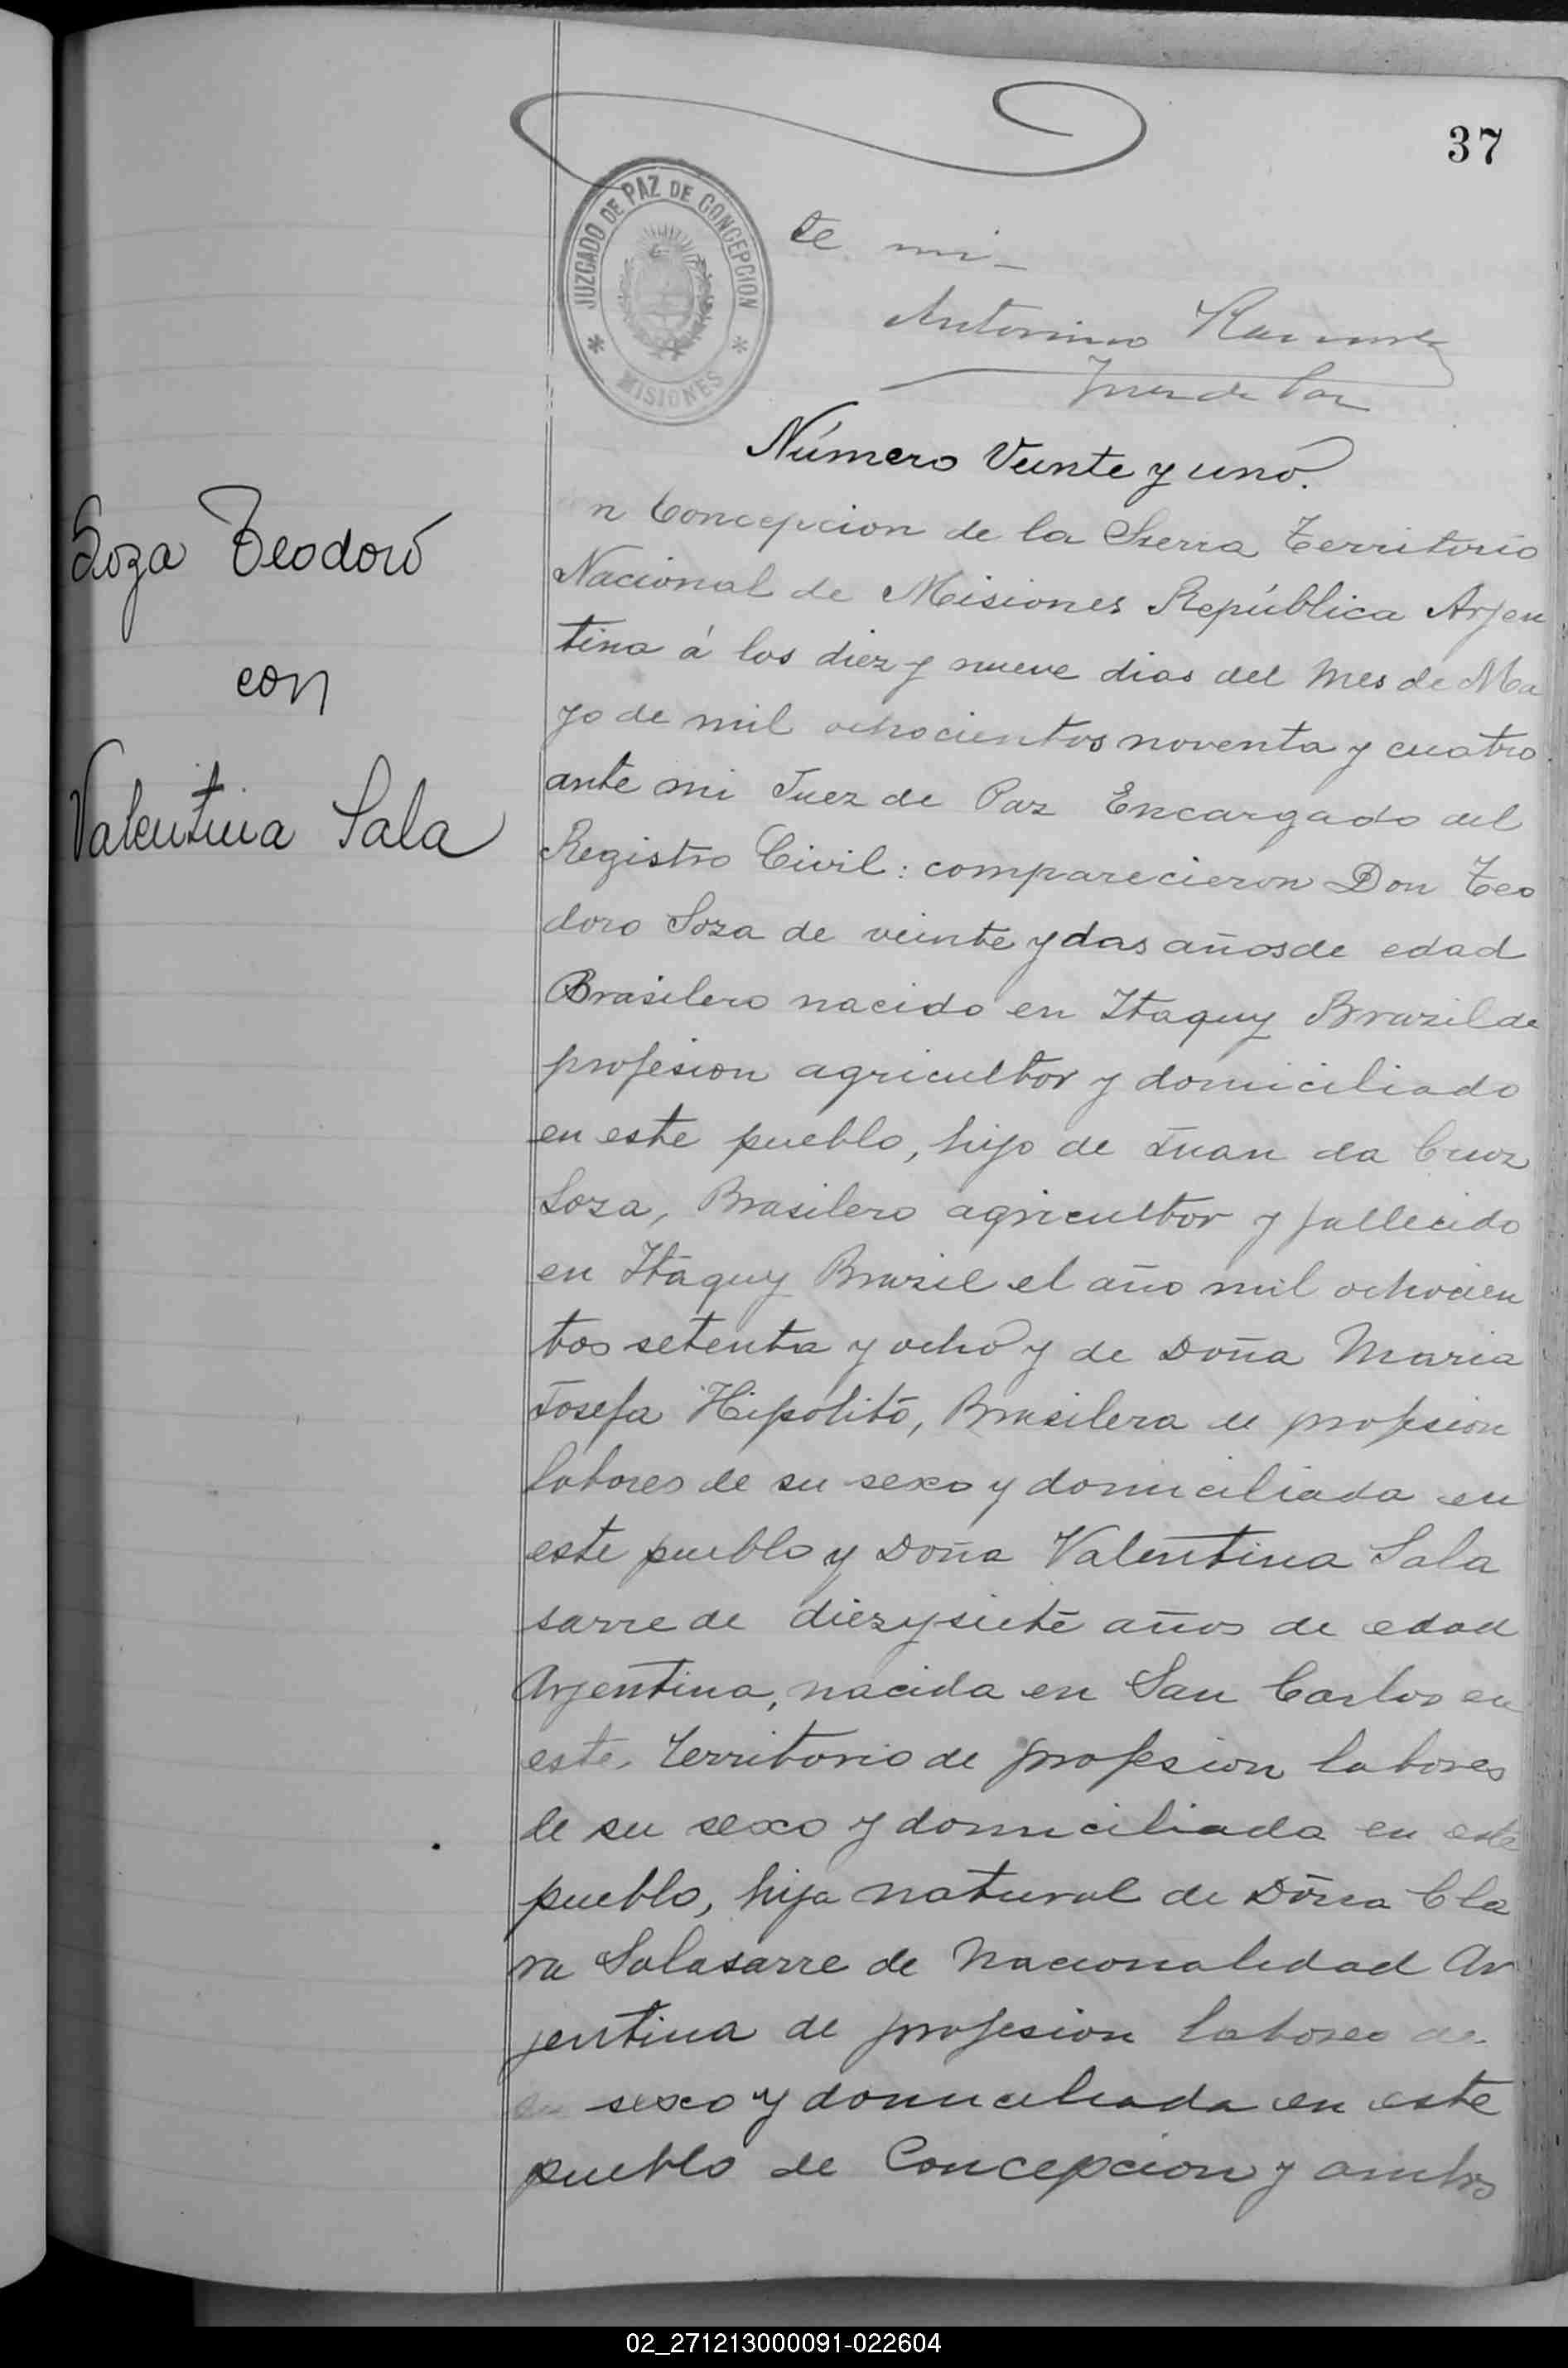 37
JUZGADO DE PAZ DE CONCEPCION
* MISIONES *
te mi
Antonino Ramirez
Juez de Paz
Número Veinte y uno.
Soza Teodoro
con
Valentina Sala
n Concepcion de la Sierra Territorio
Nacional de Misiones República Arjen
tina á los diez y nueve dias del mes de Ma
yo de mil ochocientos noventa y cuatro
ante mi Juez de Paz Encargado del
Registro Civil: comparecieron Don Teo
doro Soza de veinte y dos años de edad
Brasilero nacido en Itaquy Brazil de
profesion agricultor y domiciliado
en este pueblo, hijo de Juan da Cruz
Soza, Brasilero agricultor y fallecido
en Itaquy Brazil el año mil ochocien
tos setenta y ocho y de Doña Maria
Josefa Hipolito, Brasilera de profesion
labores de su sexo y domiciliada en
este pueblo y Doña Valentina Sala
sarre de diez y siete años de edad
Arjentina, nacida en San Carlos en
este Territorio de profesion labores
de su sexo y domiciliada en este
pueblo, hija natural de Doña Cla
ra Salasarre de nacionalidad Ar
jentina de profesion labores de
su sexo y domiciliada en este
pueblo de Concepcion y ambos
02_271213000091-022604